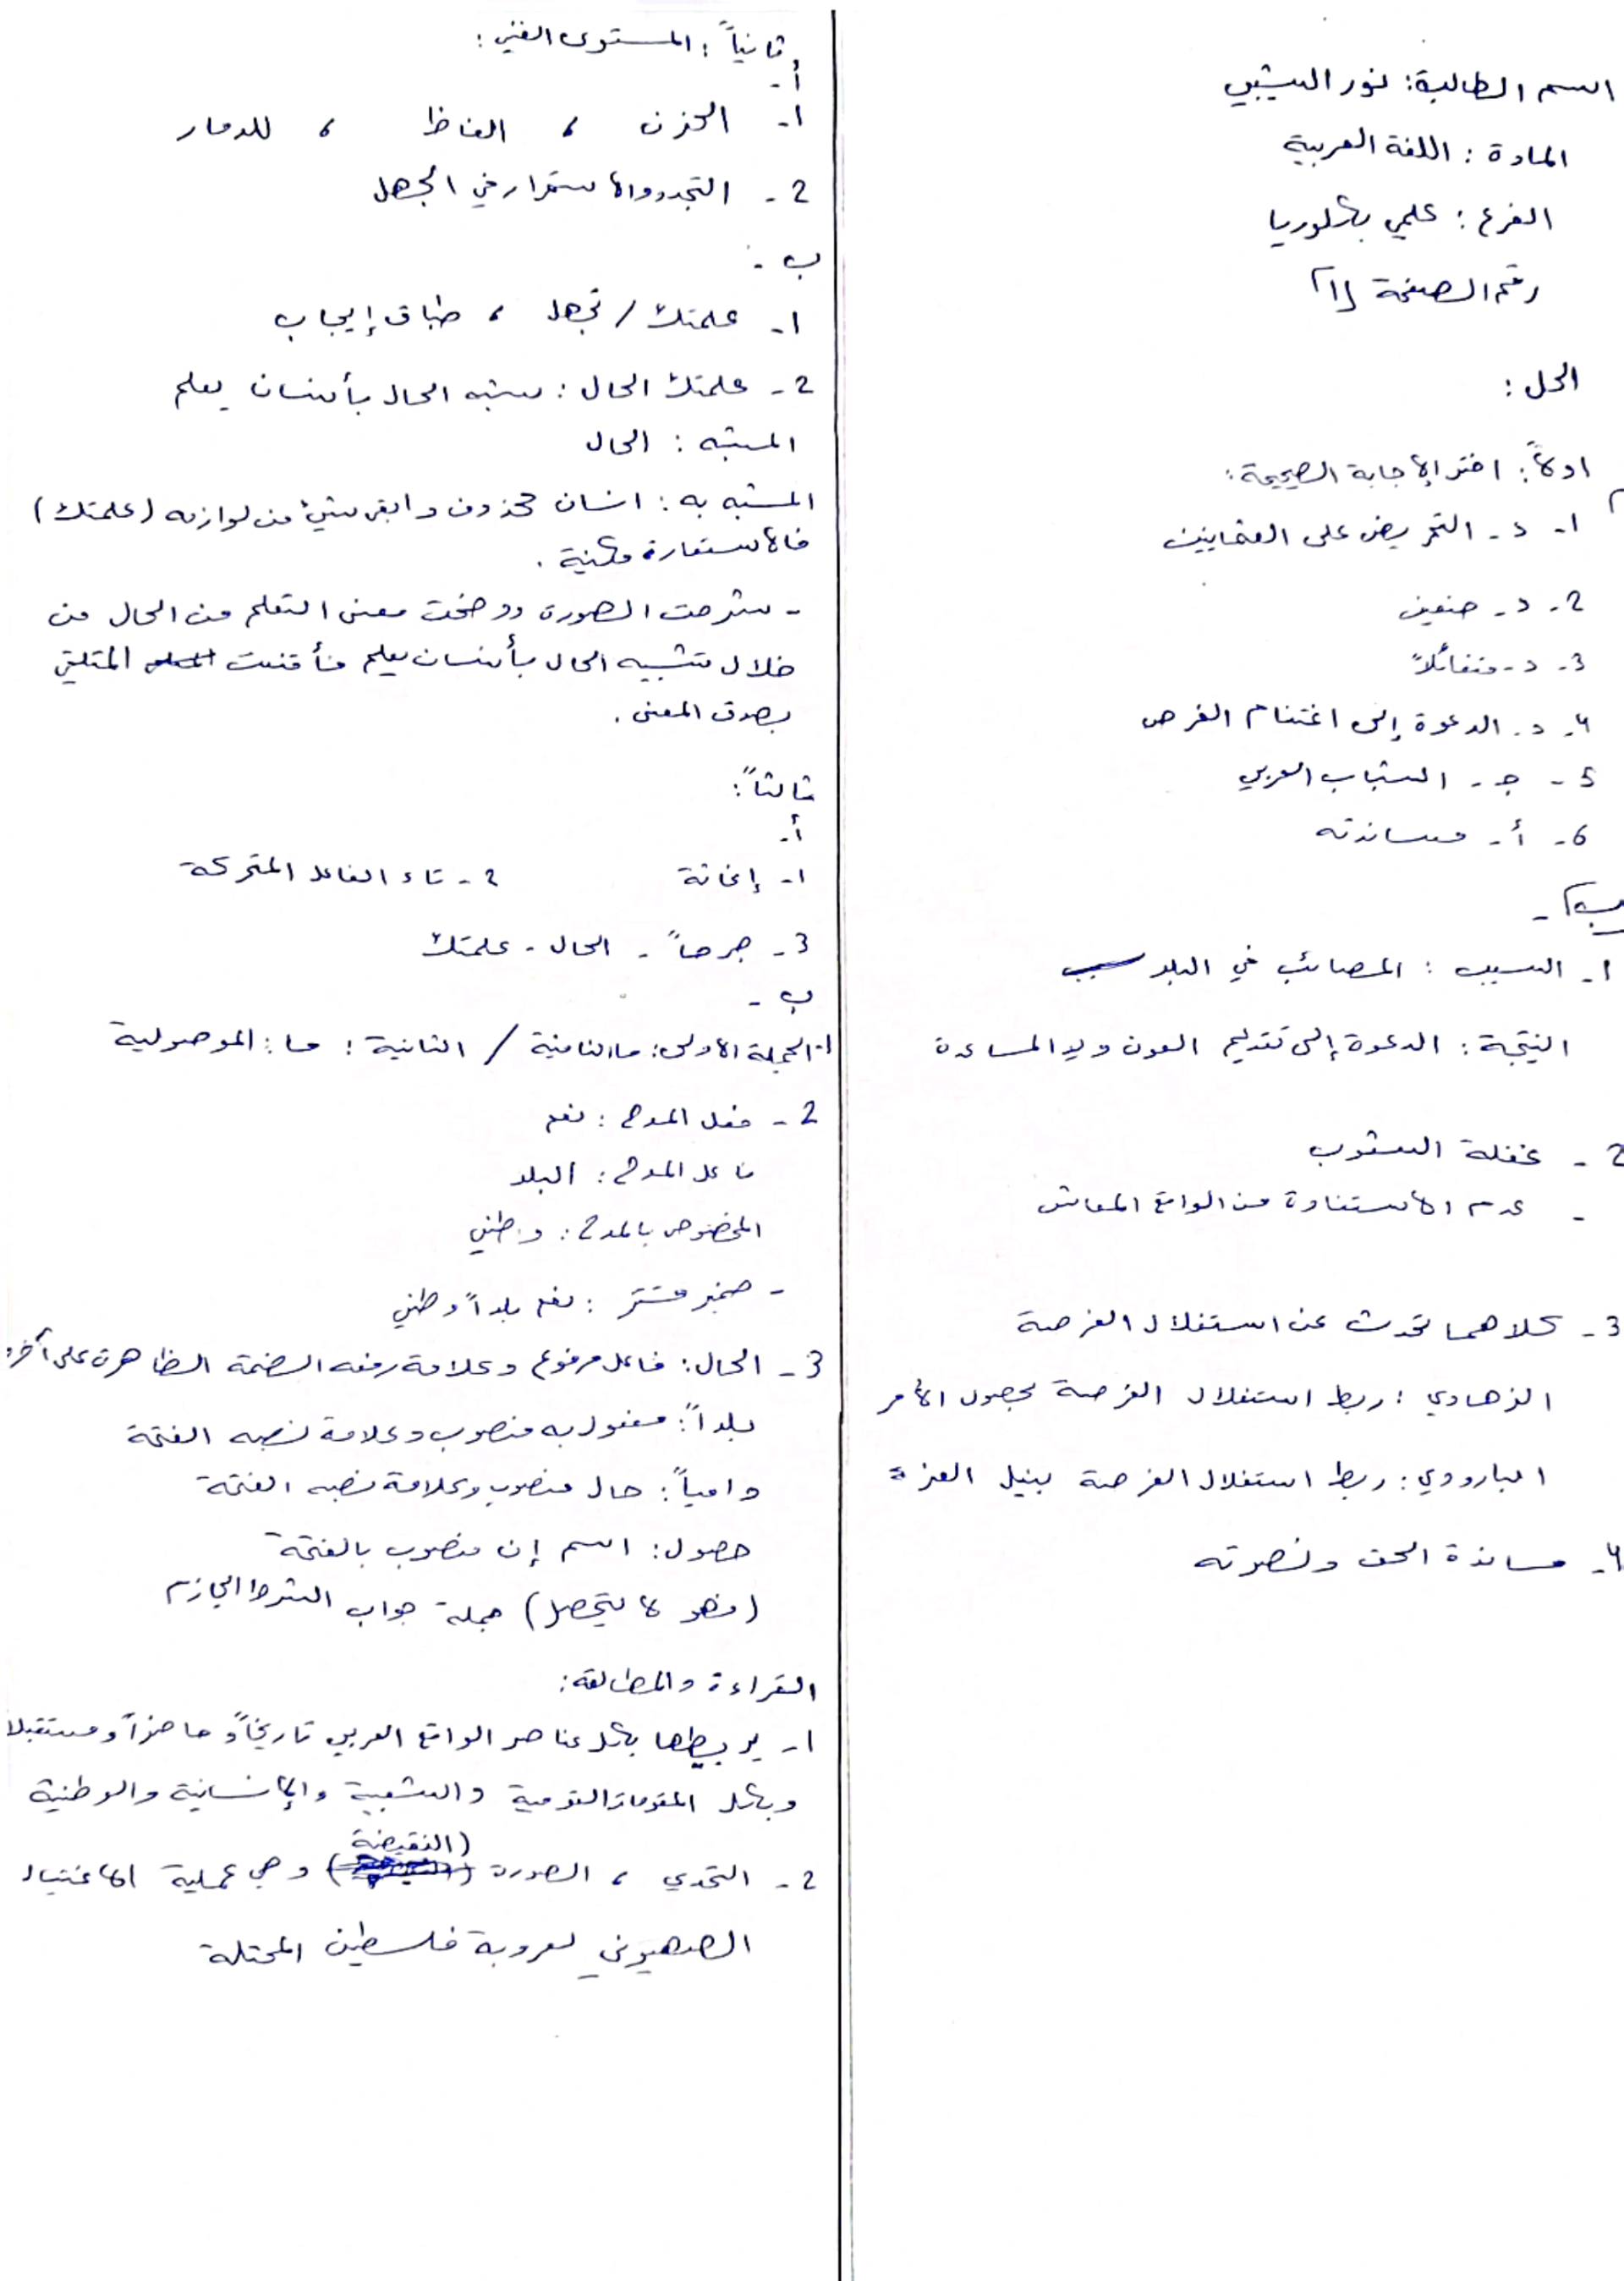 اسم الطالبة: نور الشيبي
المادة : اللغة العربية
الفرع : علمي بكلوريا
رقم الصفحة (1)
الحل :
اولاً: اختر الإجابة الصحيحة :
أ
1- د - التحريض على العثمانيين
2- د - صنفين
3- د - متفائلاً
4- د - الدعوة إلى اغتنام الفرص
5 - ج - الشباب العربي
6 - أ - مساندته
ب) -
1- السبب : المصائب في البلد
النتيجة : الدعوة إلى تقديم العون ويد المساعدة
2 - غفلة الشعوب
- عدم الاستفادة من الواقع المعاش
3 - كلاهما تحدث عن استغلال الفرصة
الزهاوي : ربط استغلال الفرصة بحصول الأمر
البارودي : ربط استغلال الفرصة بنيل العزة
4- مساندة الحق ونصرته
ثانياً : المستوى الفني :
أ -
1- الحزن ، الفاظ ، للدمار
2 - التجدد والاستمرار في الجهل
ب -
1- علمتك / تجهل ، طباق إيجاب
2 - علمتك الحال : شبه الحال بأنسان يعلم
المشبه : الحال
المشبه به : انسان محذوف وابقى شيئ من لوازمه (علمتك)
فالاستعارة مكنية .
- شرحت الصورة ووضحت معنى التعلم من الحال من
خلال تشبيه الحال بأنسان يعلم فأقنعت المتلقي
بصدق المعنى .
ثالثاً :
أ -
1- إغاثة 2 - تاء الفاعل المتحركة
3 - جرحاً - الحال - علمتك
ب -
1- الجملة الاولى : ما النافية / الثانية : ما : الموصولية
2 - فعل المدح : نعم
فاعل المدح : البلد
المخصوص بالمدح : وطني
- ضمير مستتر : نعم بلداً وطني
3 - الحال : فاعل مرفوع وعلامة رفعه الضمة الظاهرة على آخره
بلداً : مفعول به منصوب وعلامة نصبه الفتحة
دامياً : حال منصوب وعلامة نصبه الفتحة
حصول : اسم إن منصوب بالفتحة
(فهو لا يتحصل) جملة جواب الشرط الجازم
القراءة والمطالعة :
1- يربطها بكل عناصر الواقع العربي تاريخاً وحاضراً ومستقبلا
وبكل المقومات القومية والشعبية والإنسانية والوطنية
2 - التحدي ، الصورة (النقيضة) وهي عملية الاغتيال
الصهيوني لعروبة فلسطين المحتلة